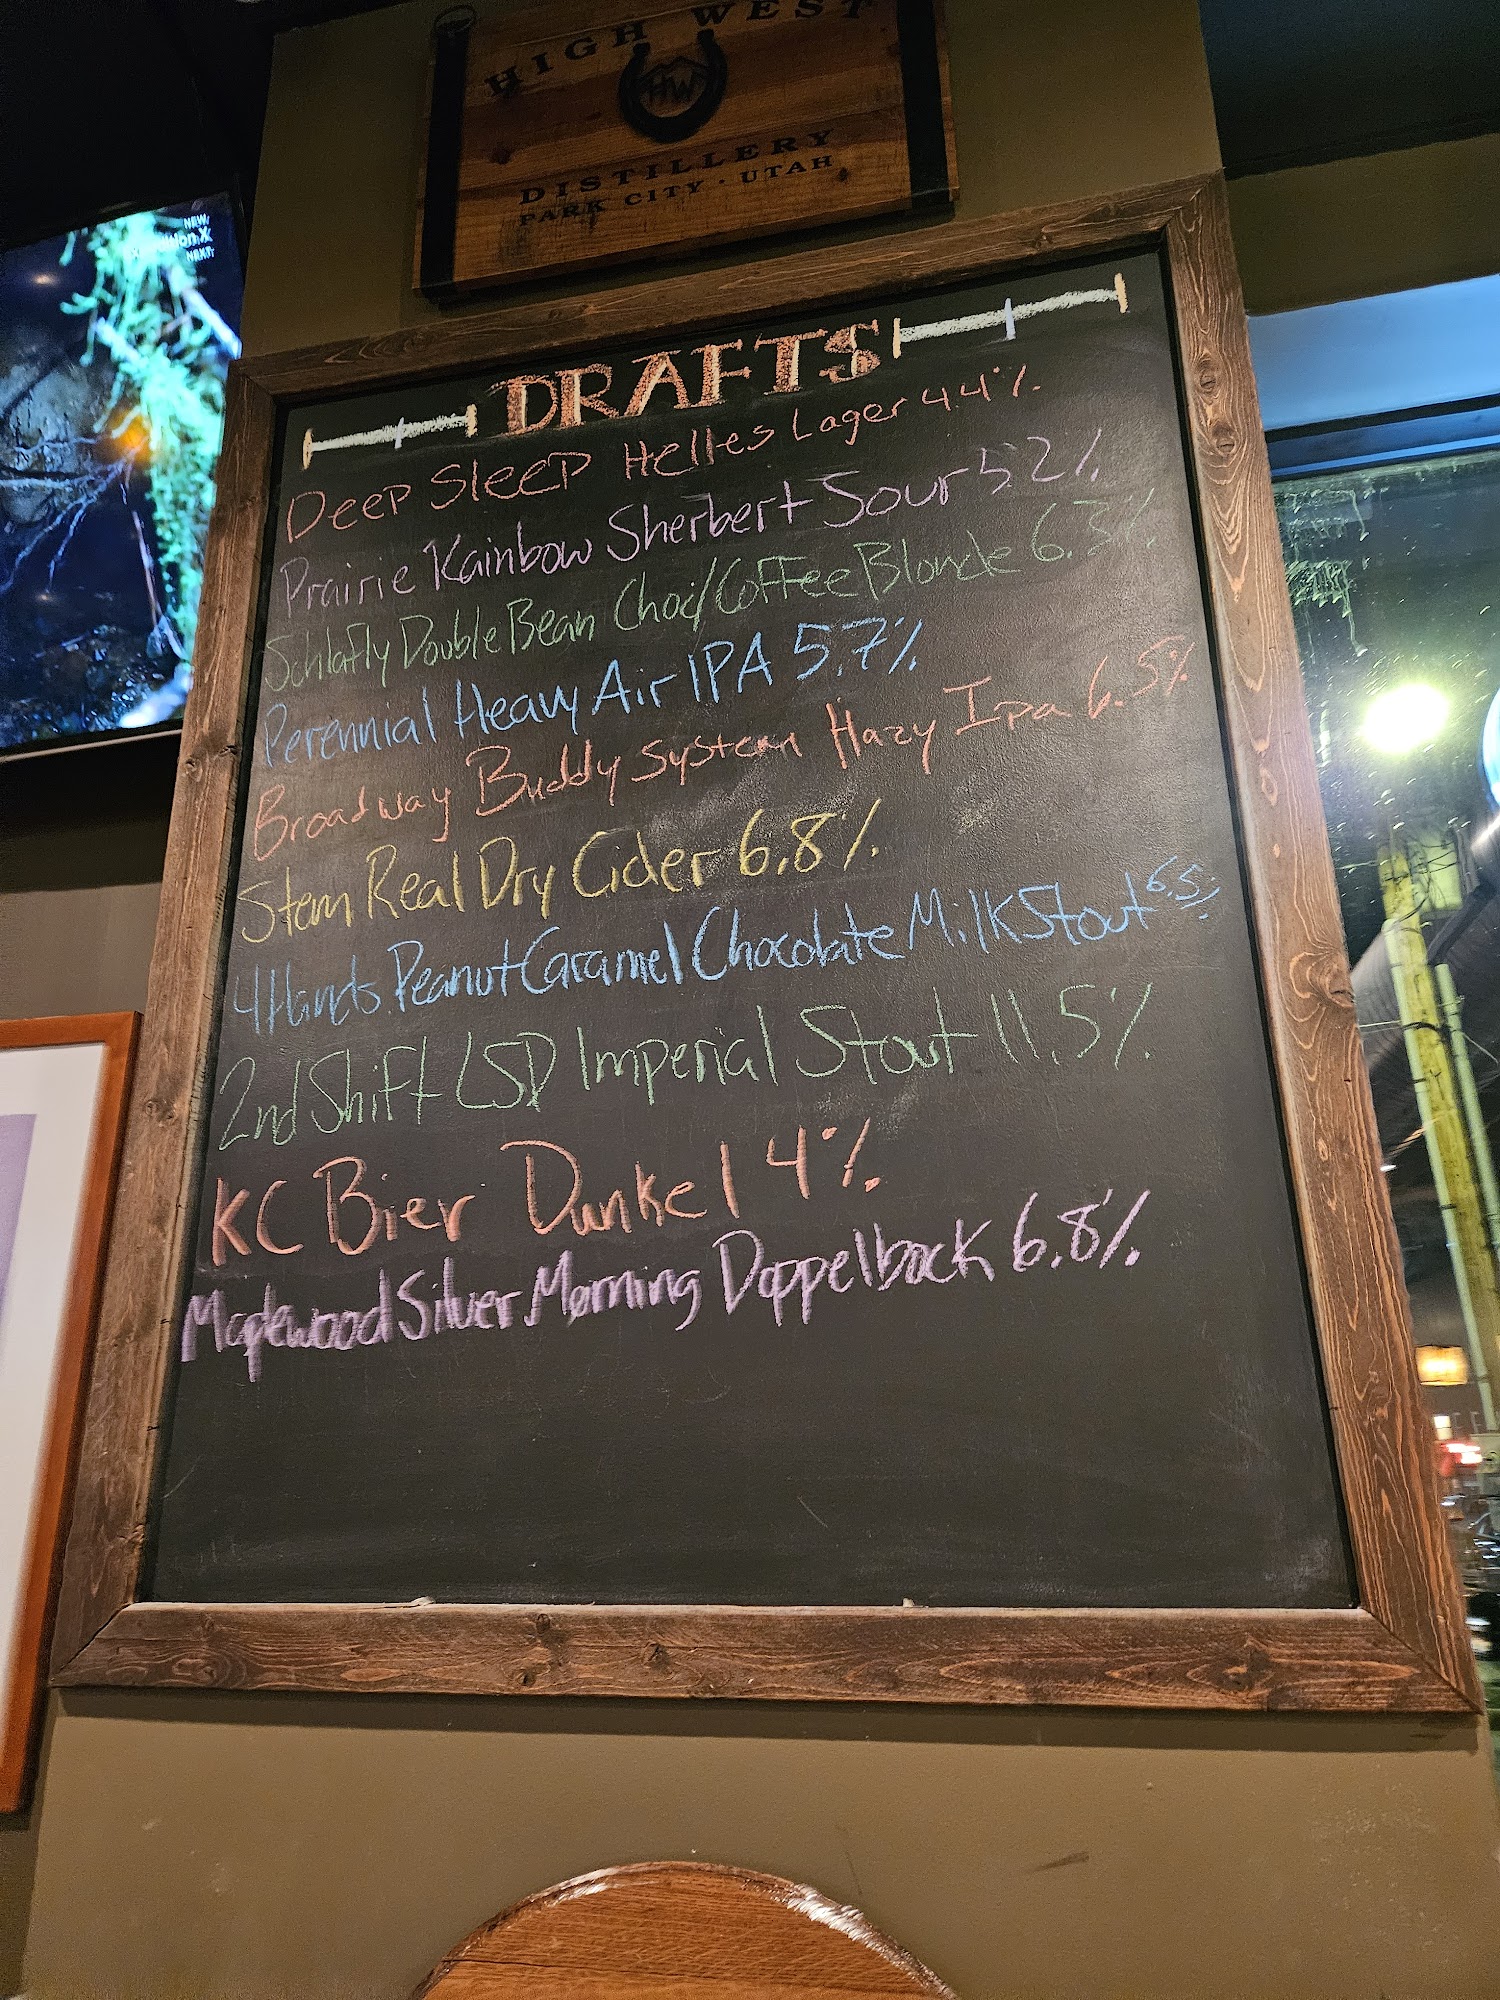 HIGH WEST
HW
DISTILLERY
PARK CITY · UTAH
NEW
NEXT:
DRAFTS
Deep Sleep Helles Lager 4.4%
Prairie Rainbow Sherbert Sour 5.2%
Schlafly Double Bean Choc/Coffee Blonde 6.3%
Perennial Heavy Air IPA 5.7%
Broadway Buddy System Hazy Ipa 6.5%
Stem Real Dry Cider 6.8%
4 Hands Peanut Caramel Chocolate Milk Stout 6.5%
2nd Shift LSD Imperial Stout 11.5%
KC Bier Dunkel 4%
Maplewood Silver Morning Doppelbock 6.8%